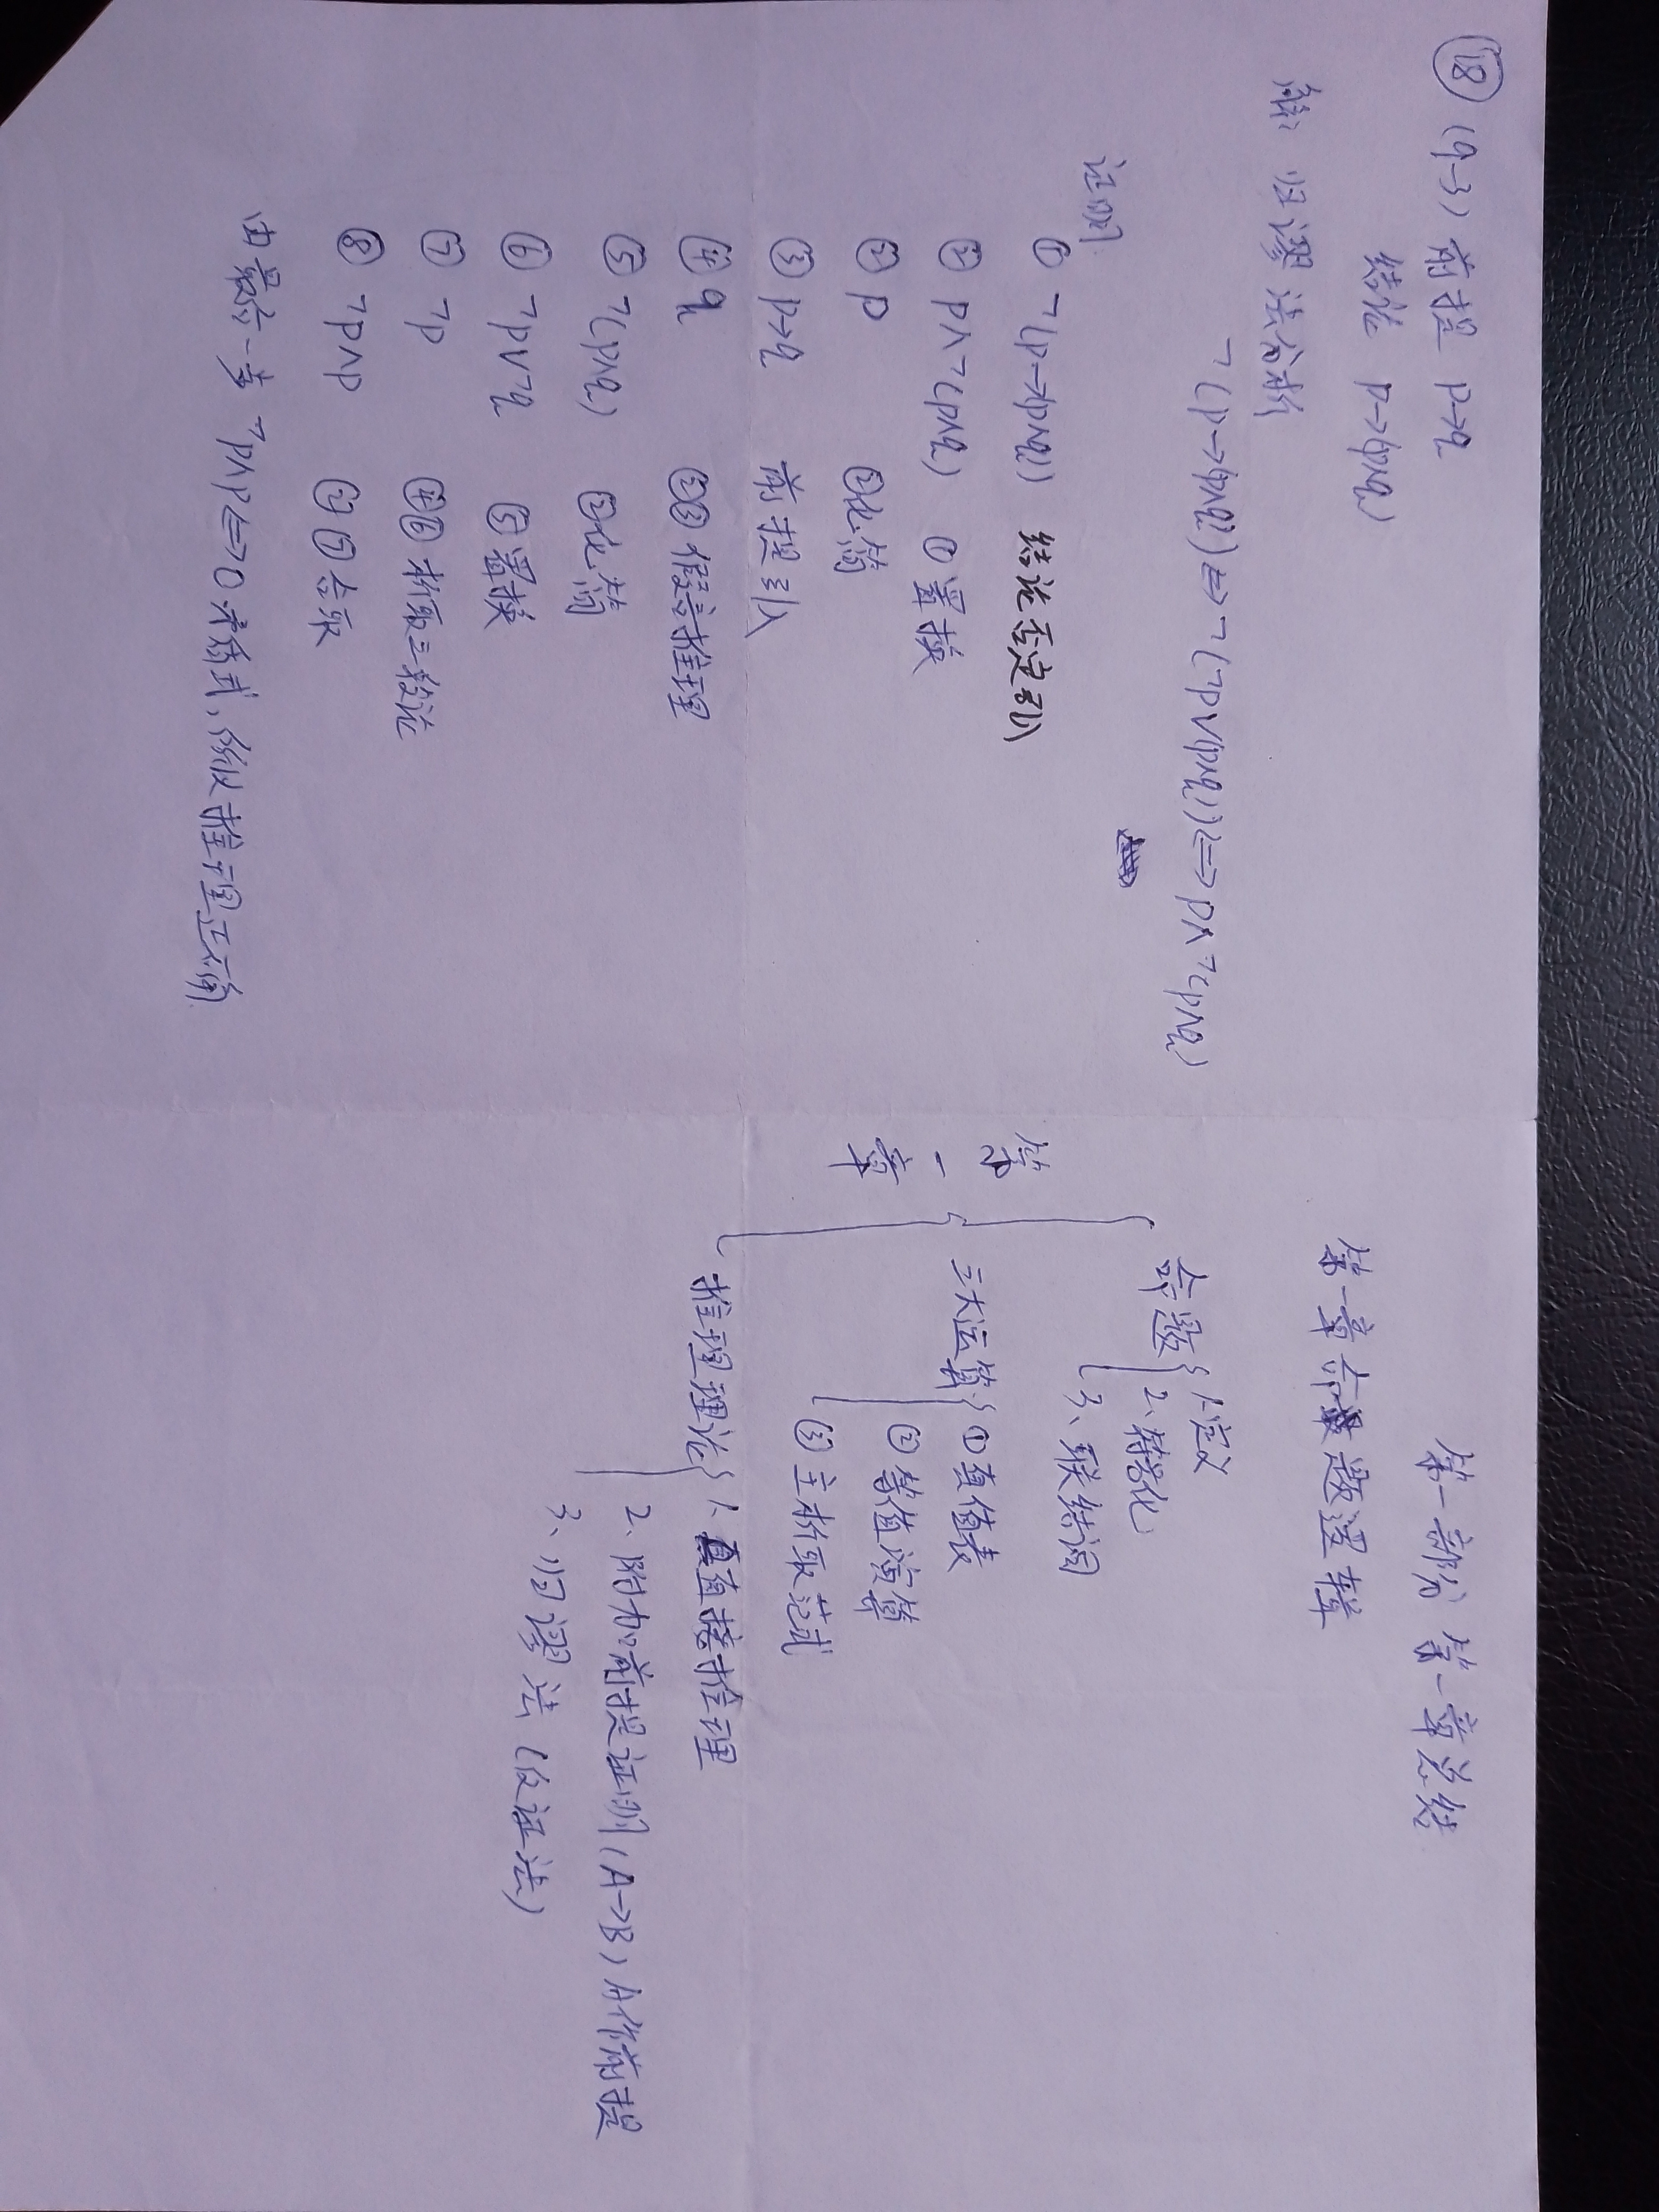 ⑱ (9-3) 前提 p→q
结论 p→(p∧q)
解: 归谬法分析
¬(p→(p∧q))⇔¬(¬p∨(p∧q))⇔p∧¬(p∧q)
证明
① ¬(p→(p∧q)) 结论否定引入
② p∧¬(p∧q) ①置换
② p ②化简
③ p→q 前提引入
④ q ②③假言推理
⑤ ¬(p∧q) ②化简
⑥ ¬p∨¬q ⑤置换
⑦ ¬p ④⑥析取三段论
⑧ ¬p∧p ②⑦合取
由最后一步 ¬p∧p⇔0 矛盾式, 所以推理正确.
第一部分 第一章总结
第一章命题逻辑
第一章
命题
1.定义
2、符号化
3、联结词
三大运算
①真值表
②等值演算
③主析取范式
推理理论
1.直接推理
2、附加前提证明(A→B) A作前提
3、归谬法(反证法)